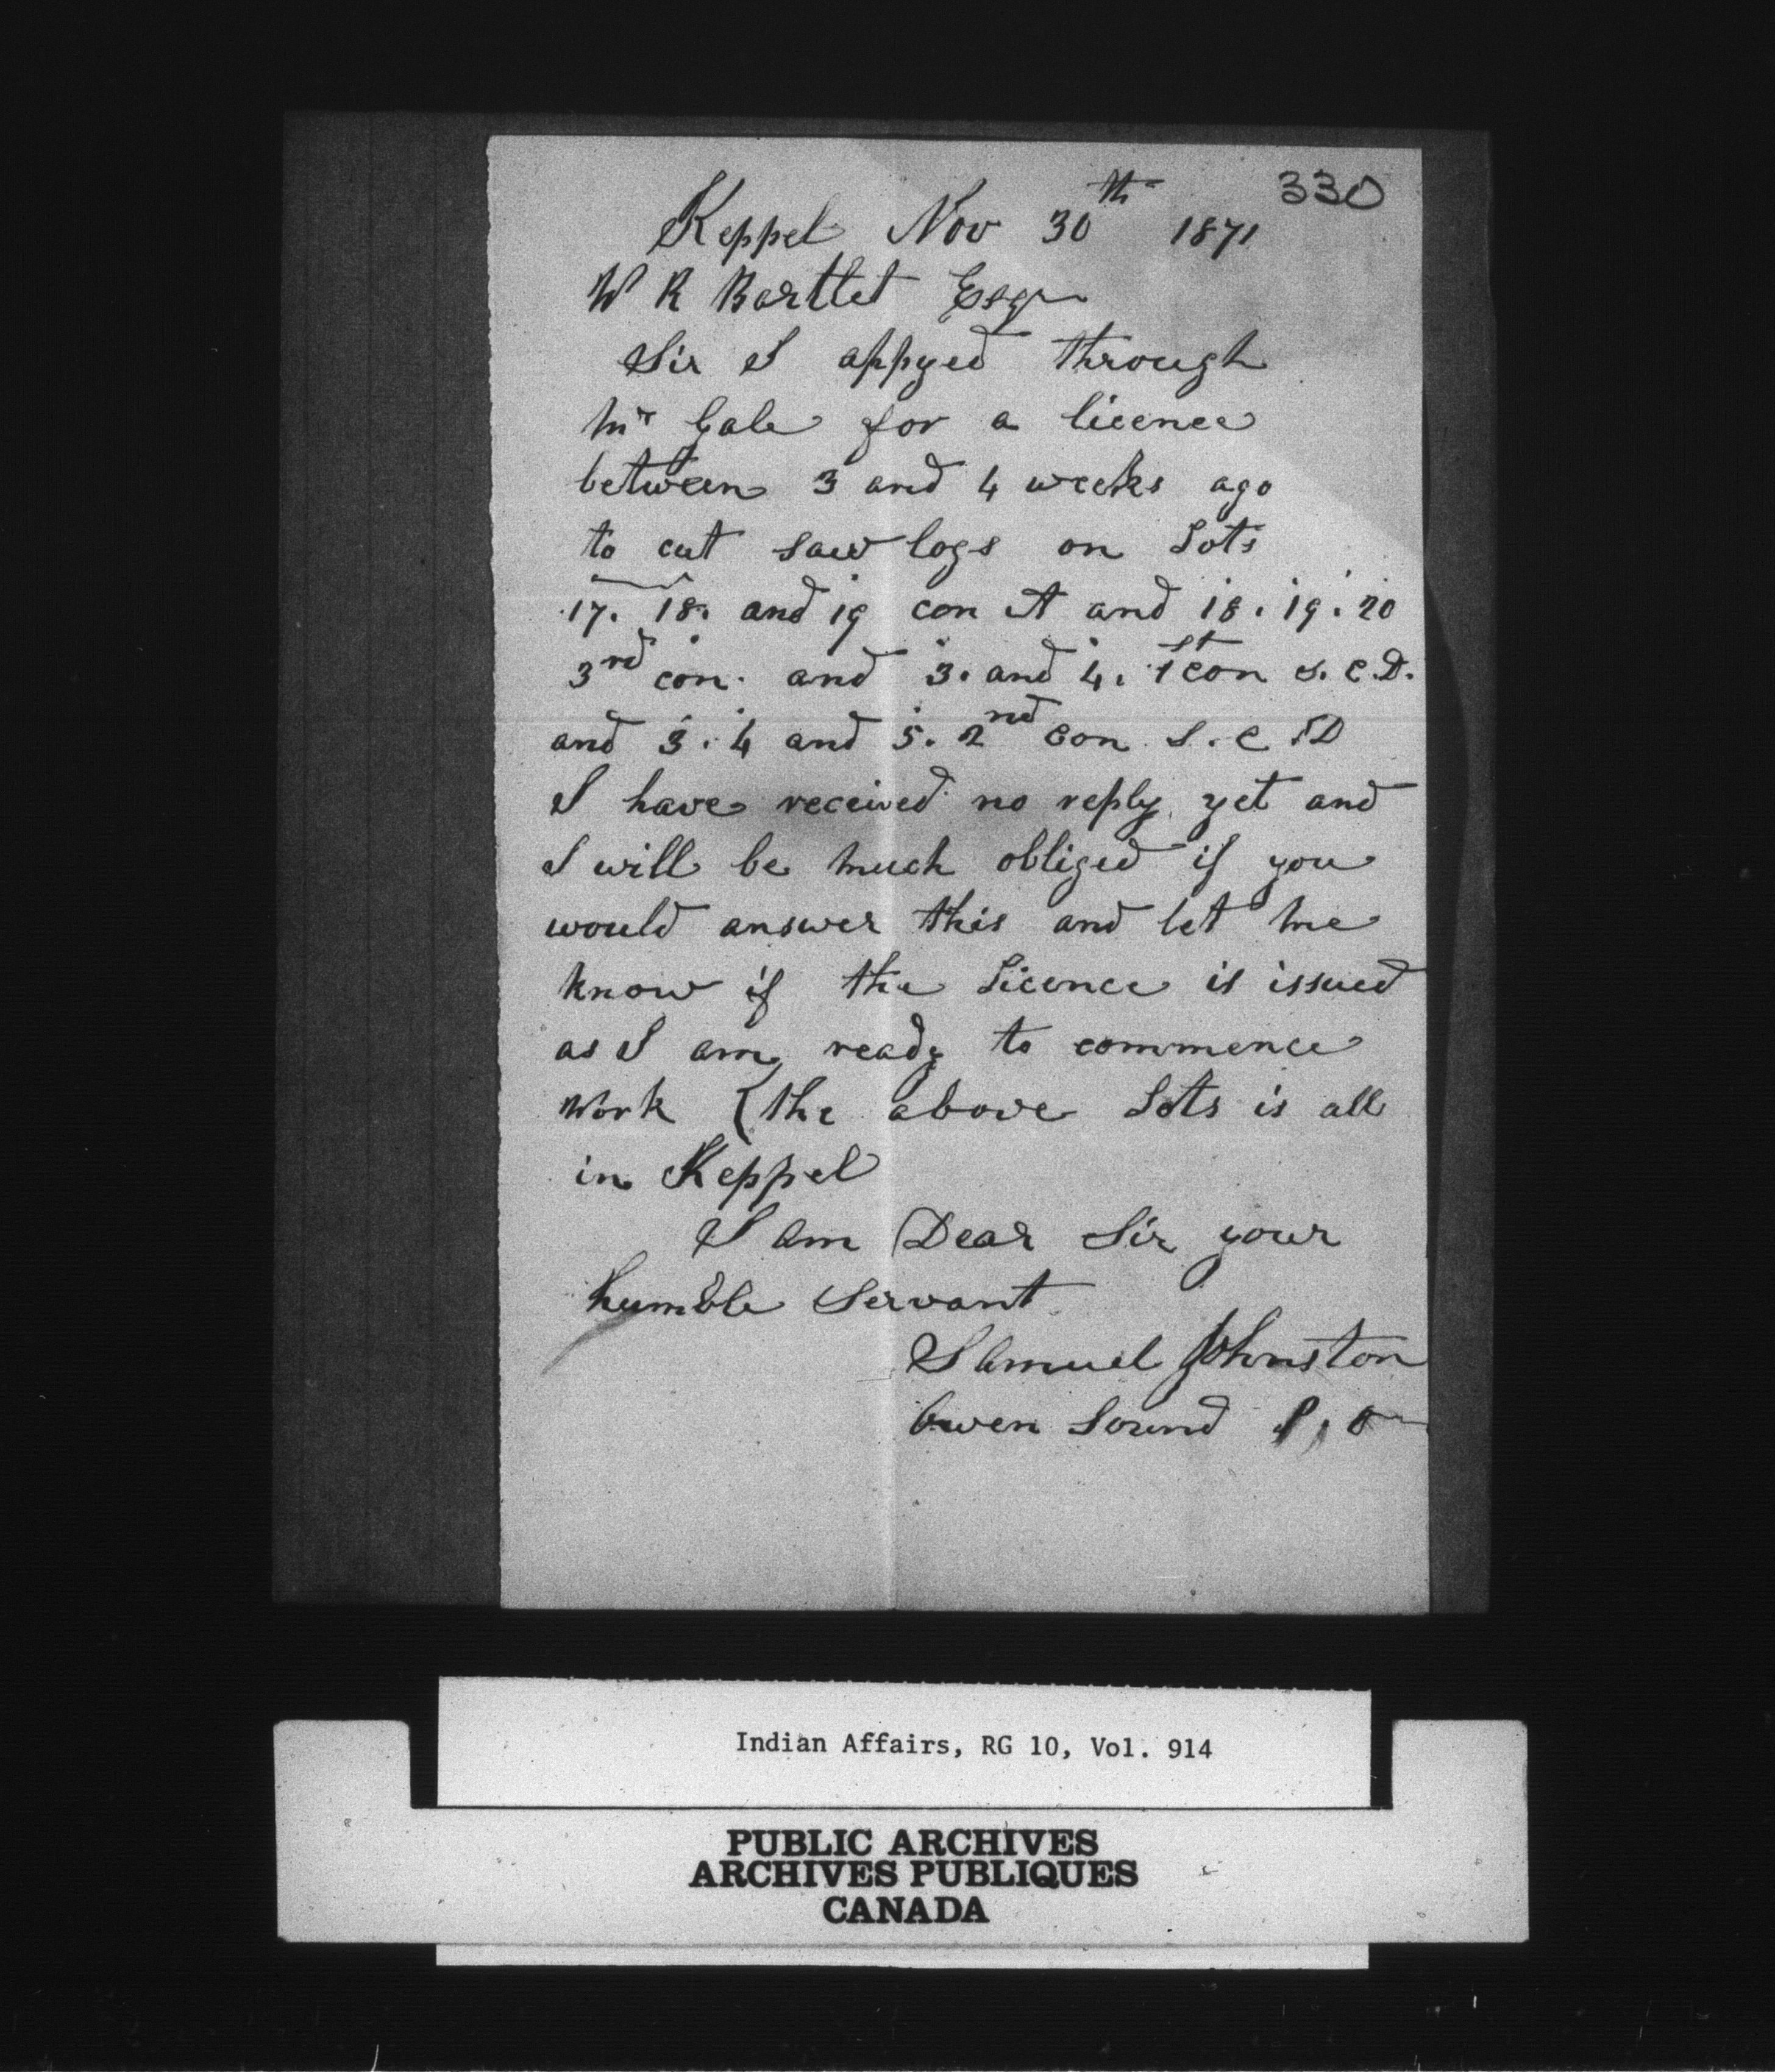 330
Keppel Nov 30th 1871
W R Bartlet Esqr
Sir I appyed through
Mr Gale for a licence
between 3 and 4 weeks ago
to cut saw logs on Lots
17. 18. and 19 con A and 18. 19. 20
3rd con. and 3. and 4. 1st con S. C. D.
and 3. 4 and 5. 2nd con S. C. D
I have received no reply yet and
I will be much obliged if you
would answer this and let me
know if the Licence is issued
as I am ready to commence
work (the above Lots is all
in Keppel
I am Dear Sir your
humble Servant
Samuel Johnston
Owen Sound P. O
Indian Affairs, RG 10, Vol. 914
PUBLIC ARCHIVES
ARCHIVES PUBLIQUES
CANADA